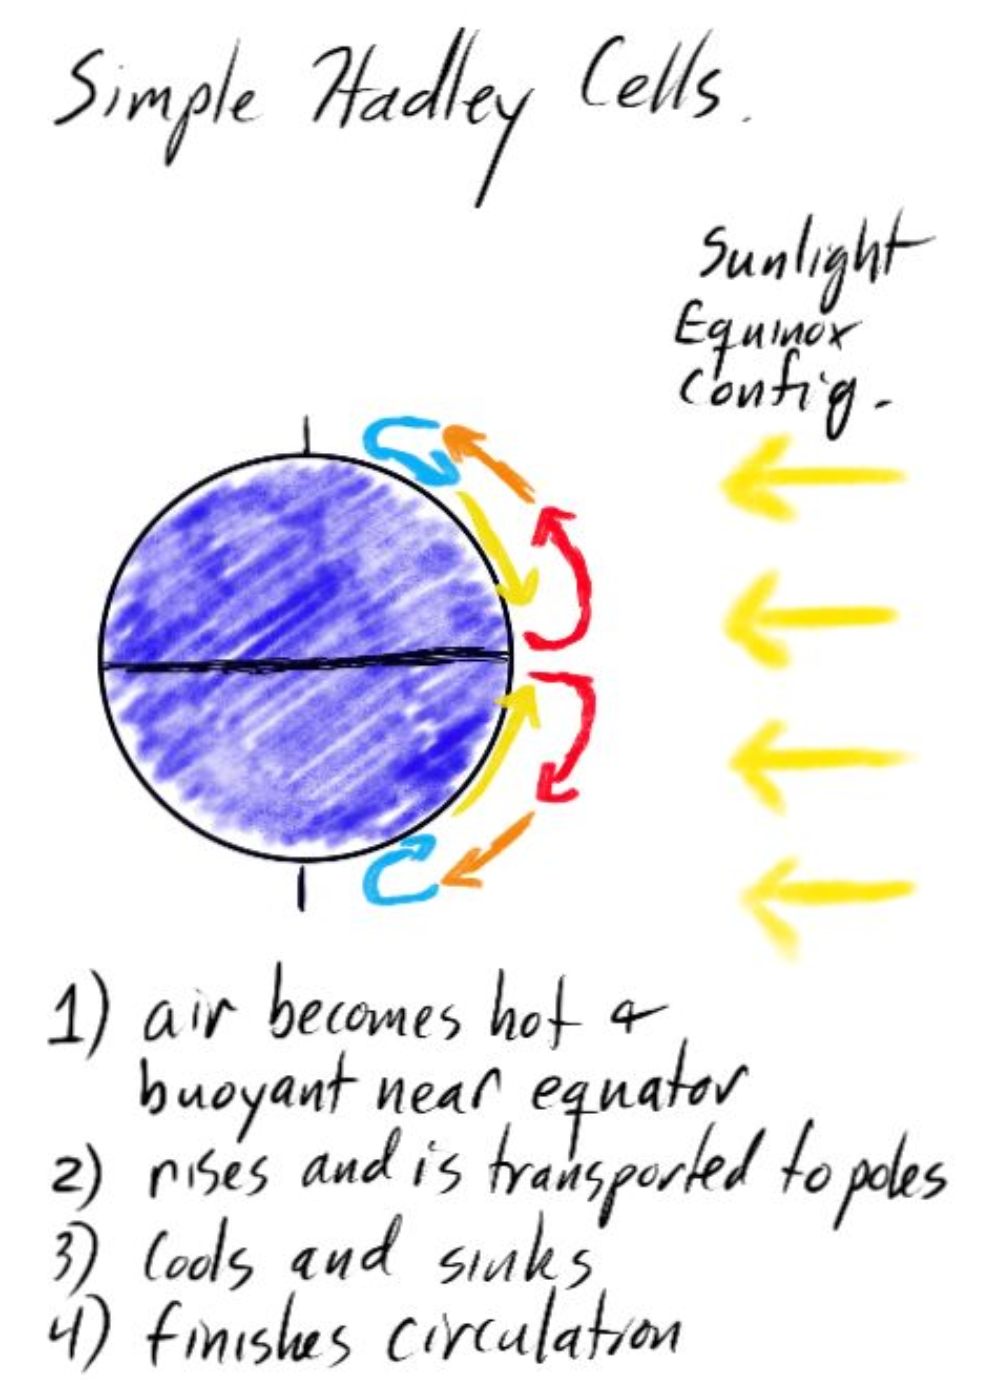 Simple Hadley Cells.
Sunlight
Equinox
Config.
1) air becomes hot &
buoyant near equator
2) rises and is transported to poles
3) Cools and sinks
4) finishes circulation